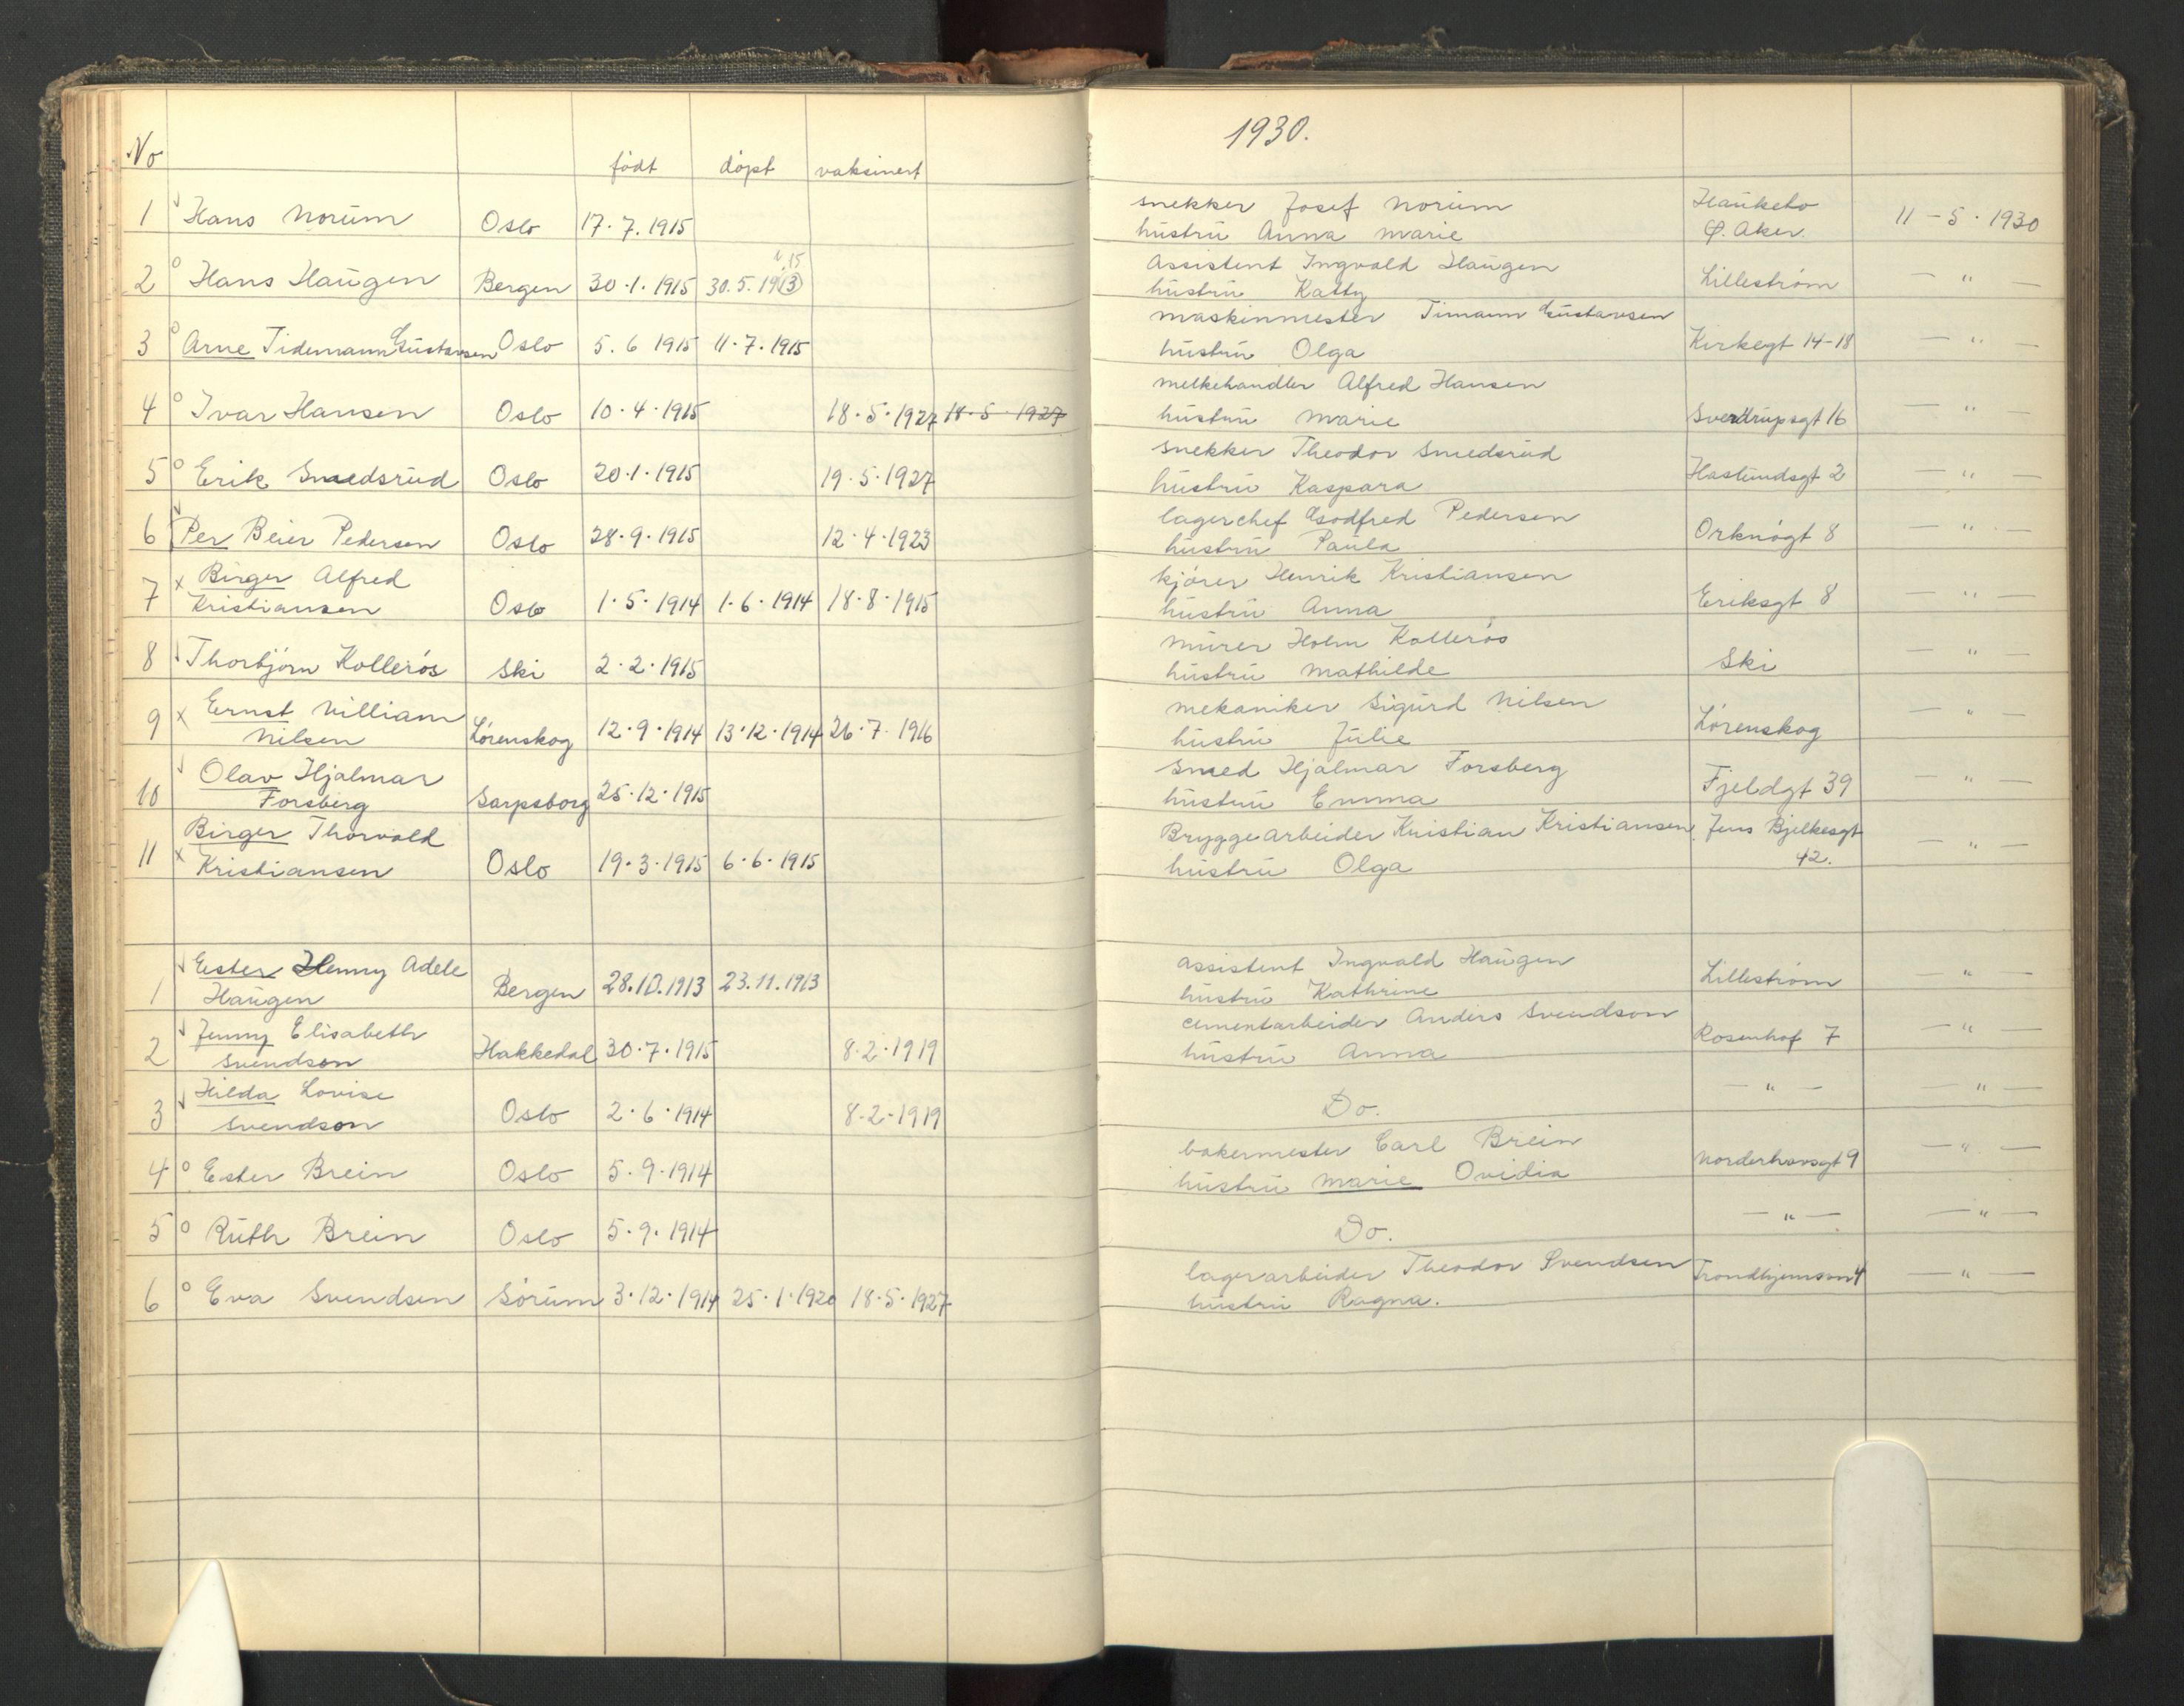 1930.
No født døpt vaksinert
snekker Josef Norum Hauketo
1 Hans Norum Oslo 17.7.1915 hustru Anna Marie Ø. Aker. 11-5.1930
v. 15
Assistent Ingvald Haugen
2 Hans Haugen Bergen 30.1.1915 30.5.1913 hustru Katty Lillestrøm — " —
maskinmester Timann Gustavsen
3 Arne Tidemann Gustavsen Oslo 5.6 1915 11.7.1915 hustru Olga Kirkegt 14-18 — " —
melkehandler Alfred Hansen
4 Ivar Hansen Oslo 10.4.1915 18.5.1927 18.5.1927 hustru Marie Sverdrupsgt 16 — " —
snekker Theodor Smedsrud
5 Erik Smedsrud Oslo 20.1.1915 19.5.1927 hustru Kaspara Haslundsgt 2 — " —
lagerchef Godfred Pedersen
6 Per Beier Pedersen Oslo 28.9.1915 12.4.1923 hustru Paula Orknøgt 8 — " —
Birger Alfred kjører Henrik Kristiansen
7 Kristiansen Oslo 1.5.1914 1.6.1914 18.8.1915 hustru Anna Eriksgt 8 — " —
murer Holm Kollerøs
8 Thorbjørn Kollerøs Ski 2.2.1915 hustru Mathilde Ski — " —
Ernst William mekaniker Sigurd Nilsen
9 Nilsen Lørenskog 12.9.1914 13.12.1914 26.7.1916 hustru Julie Lørenskog — " —
Olav Hjalmar smed Hjalmar Forsberg
10 Forsberg Sarpsborg 25.12.1915 hustru Emma Fjeldgt 39 — " —
Birger Thorvald Bryggearbeider Kristian Kristiansen Jens Bjelkesgt
11 Kristiansen Oslo 19.3.1915 6.6.1915 hustru Olga 42. — " —
Ester Henny Adele assistent Ingvald Haugen
1 Haugen Bergen 28.10.1913 23.11.1913 hustru Kathrine Lillestrøm — " —
Jenny Elisabeth cementarbeider Anders Svendson
2 Svendson Hakkedal 30.7.1915 8.2.1919 hustru Anna Rosenhof 7 — " —
Hilda Lovise
3 Svendson Oslo 2.6.1914 8.2.1919 Do. — " — — " —
bakermester Carl Brein
4 Ester Brein Oslo 5.9.1914 hustru Marie Ovidia Norderhovsgt 9 — " —
5 Ruth Brein Oslo 5.9.1914 Do. — " — — " —
lagerarbeider Theodor Svendsen
6 Eva Svendsen Sørum 3.12.1914 25.1.1920 18.5.1927 hustru Ragna. Trondhjemsvn 4 — " —